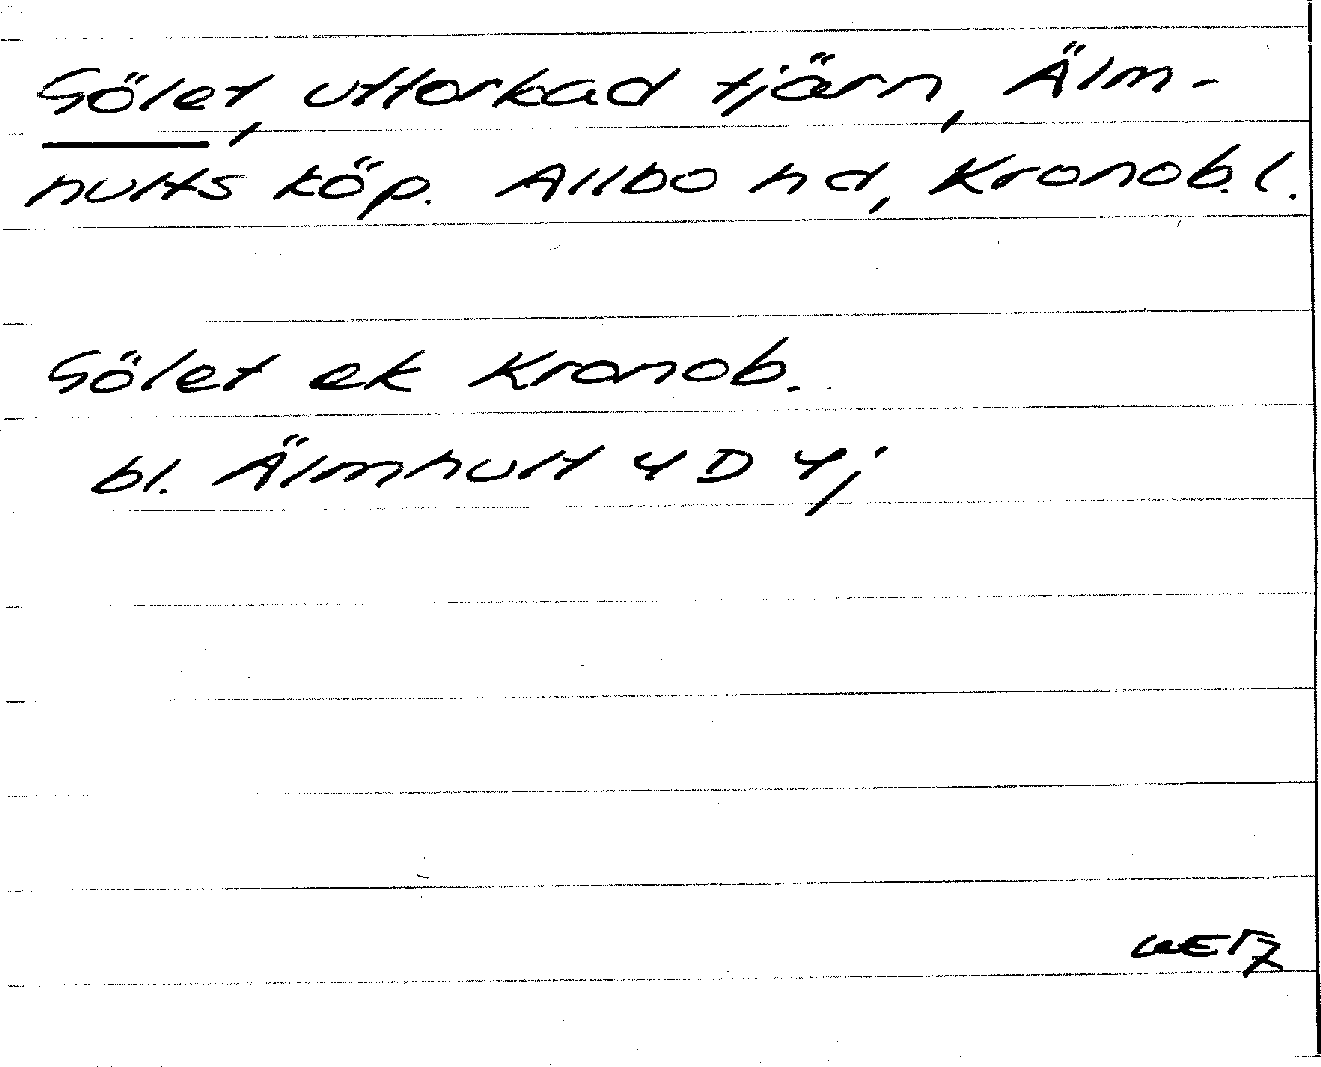 Sölet, uttorkad tjärn, Älm-
hults köp. Allbo hd, Kronob. l.
Sölet ek Kronob.
bl. Älmhult 4 D 4j